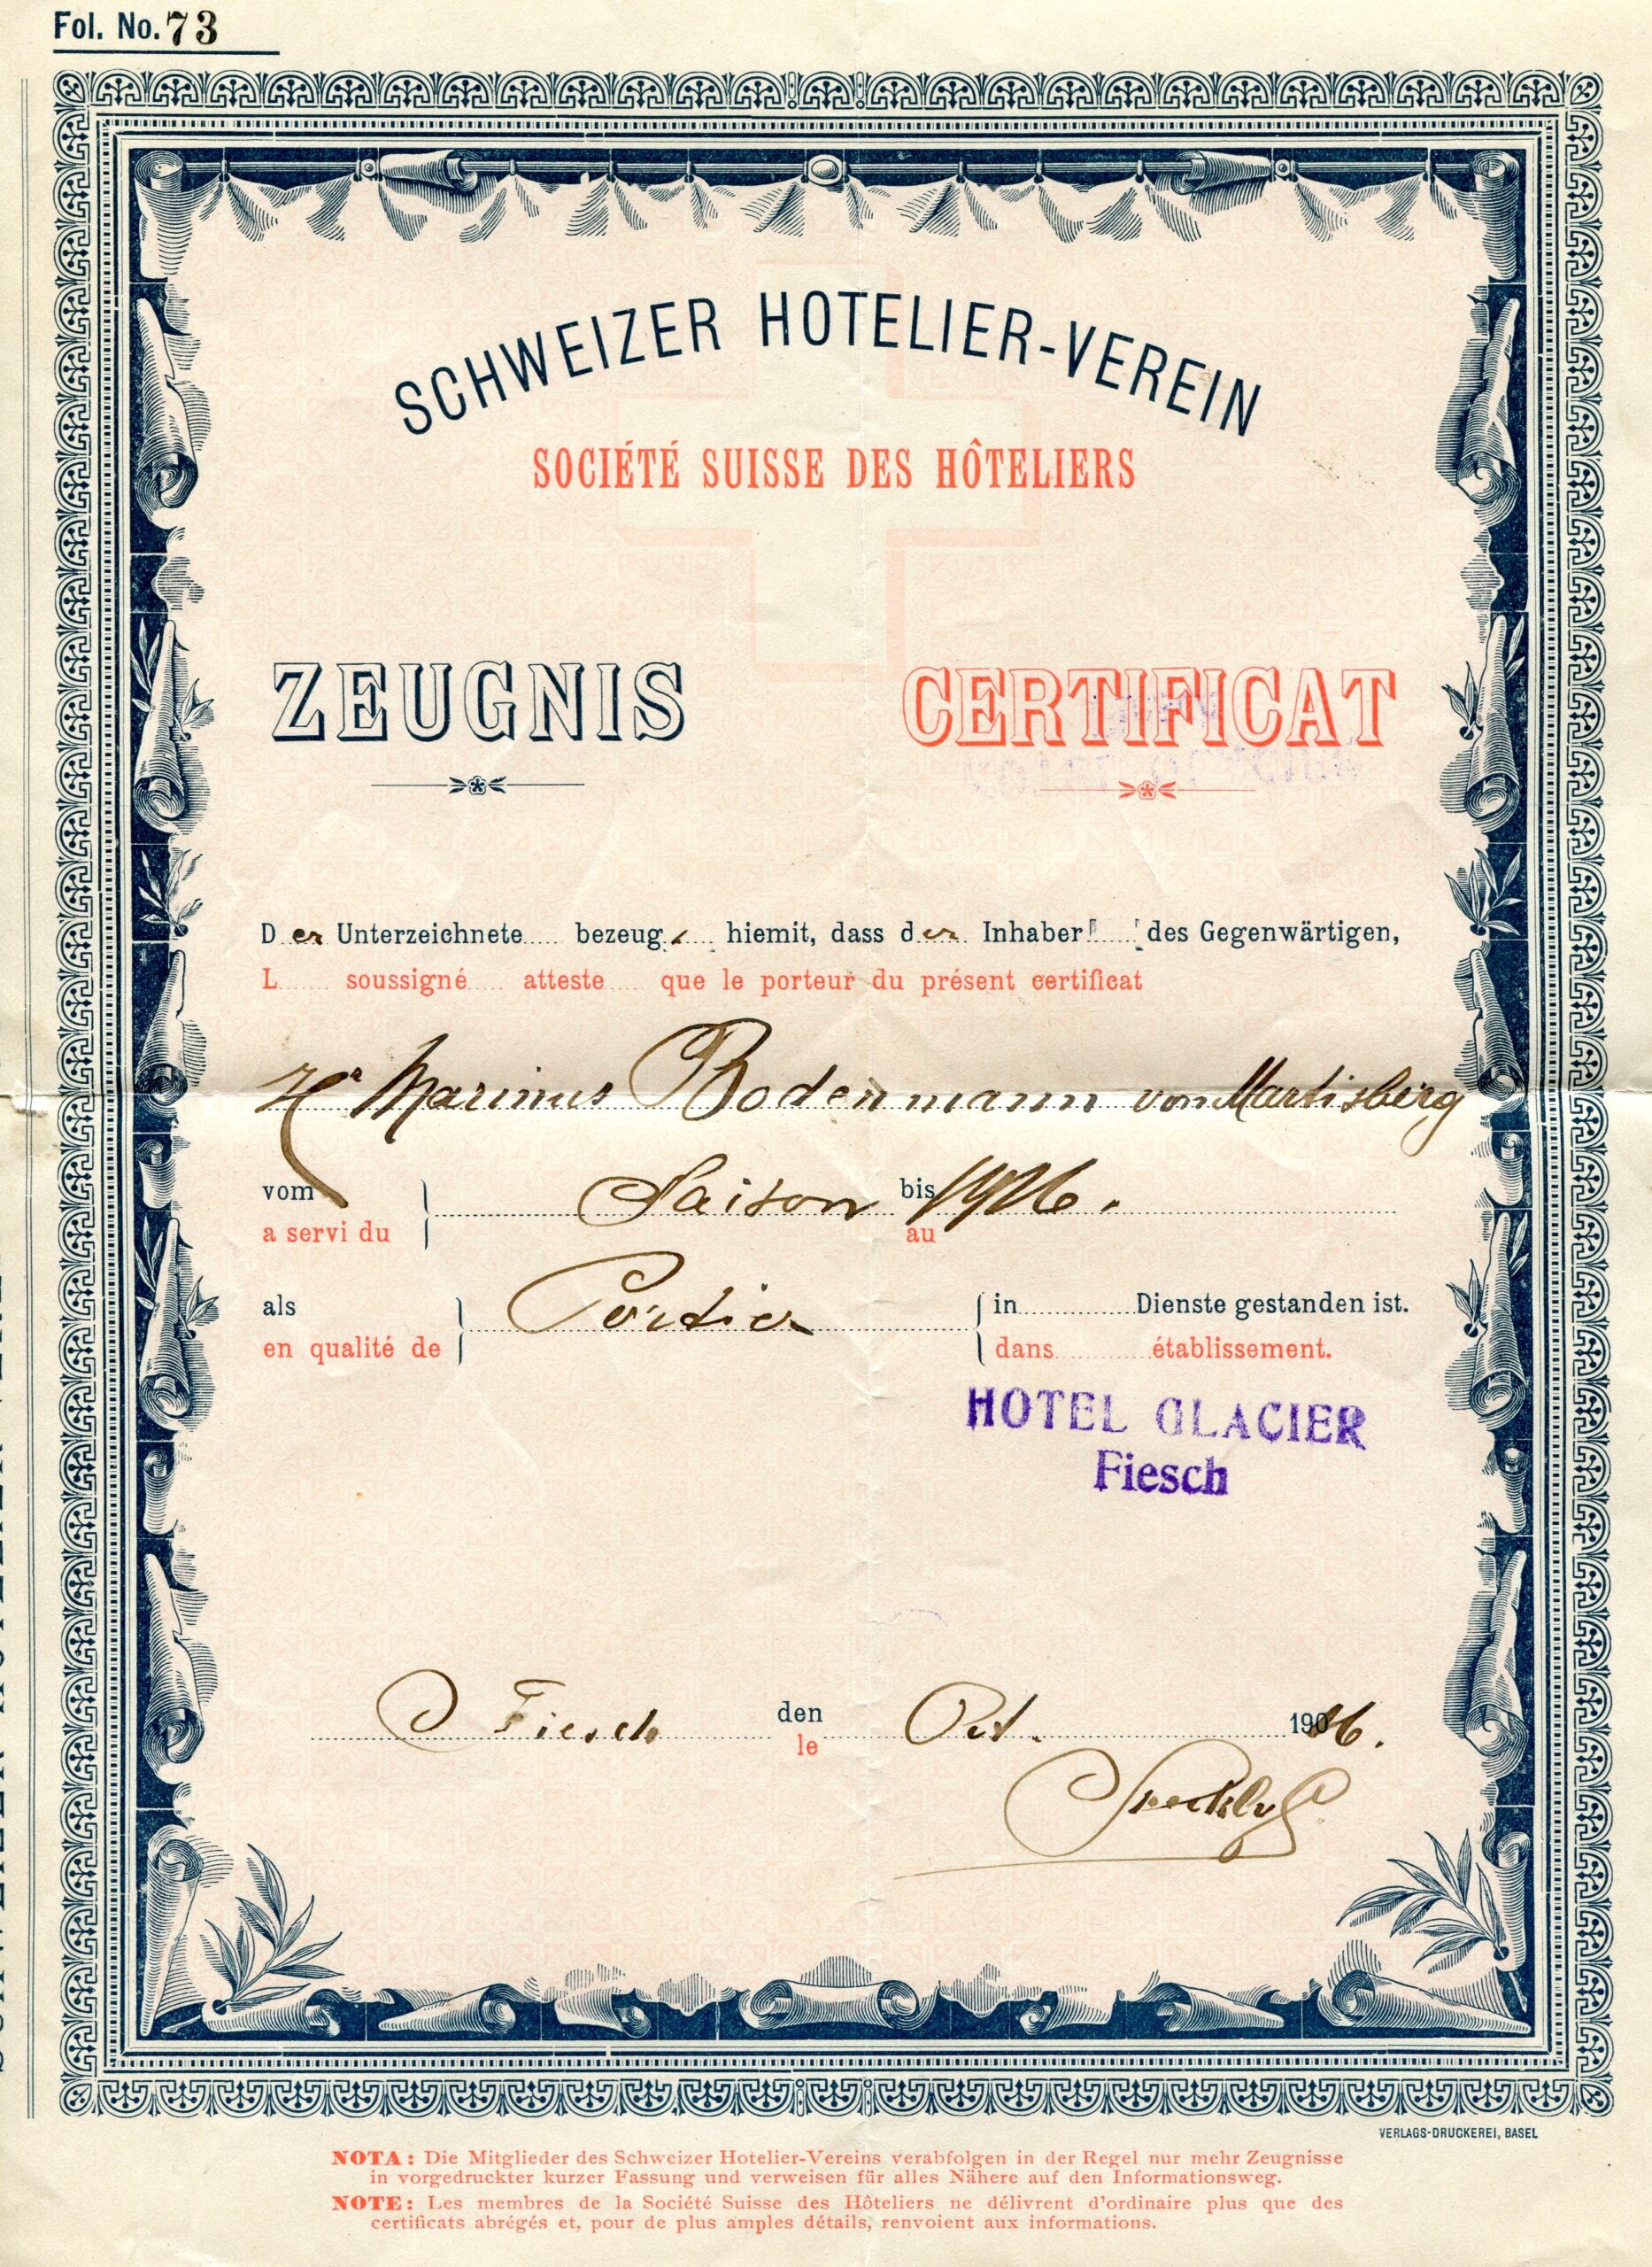 Fol. No. 73
SCHWEIZER HOTELIER-VEREIN
SOCIÉTÉ SUISSE DES HÔTELIERS
ZEUGNIS CERTIFICAT
D er Unterzeichnete..... bezeug t.... hiemit, dass der Inhaber..... des Gegenwärtigen,
L....... soussigné..... atteste..... que le porteur du présent certificat
Hr Marinus Bodenmann von Martisberg
vom Saison bis 1926.
a servi du au
als Portier in..............Dienste gestanden ist.
en qualité de dans............établissement.
HOTEL GLACIER
Fiesch
Fiesch den Oct. 1926.
le
VERLAGS-DRUCKEREI, BASEL
NOTA: Die Mitglieder des Schweizer Hotelier-Vereins verabfolgen in der Regel nur mehr Zeugnisse
in vorgedruckter kurzer Fassung und verweisen für alles Nähere auf den Informationsweg.
NOTE: Les membres de la Société Suisse des Hôteliers ne délivrent d'ordinaire plus que des
certificats abrégés et, pour de plus amples détails, renvoient aux informations.